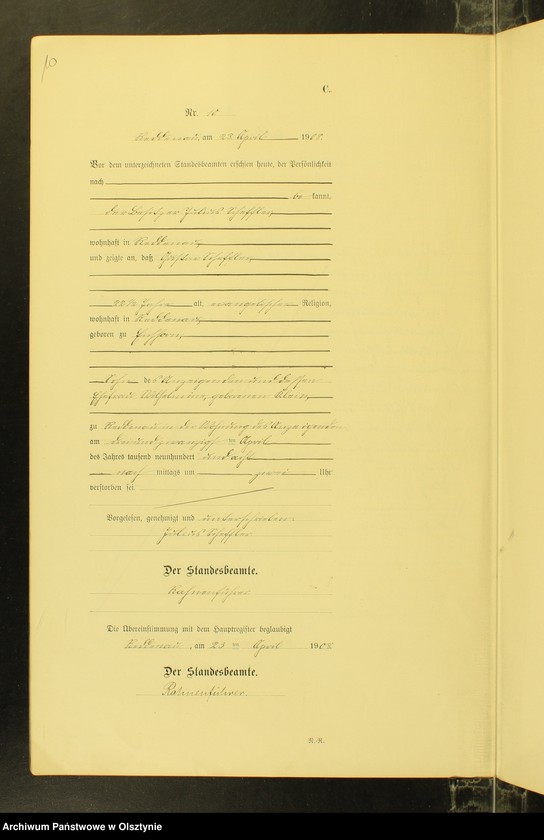 10
C.
Nr. 10
am 23 April 1908.
Vor dem unterzeichneten Standesbeamten erschien heute, der Persönlichkeit
nach
be kannt,
der Besitzer Julius Scheffler
wohnhaft in
und zeigte an, daß Scheffler
22 ½ Jahre alt, evangelischer Religion,
wohnhaft in
geboren zu
Sohn des Anzeigenden und dessen
Ehefrau Wilhelmine, geborenen
zu in der Wohnung des Anzeigenden
am dreiundzwanzigsten April
des Jahres tausend neunhundert und acht
nach mittags um zwei Uhr
verstorben sei.
Vorgelesen, genehmigt und unterschrieben
Julius Scheffler
Der Standesbeamte.
Rahnenführer
Die Übereinstimmung mit dem Hauptregister beglaubigt
, am 23 ten April 1908
Der Standesbeamte.
Rahnenführer.
R.-R.
Archiwum Państwowe w Olsztynie